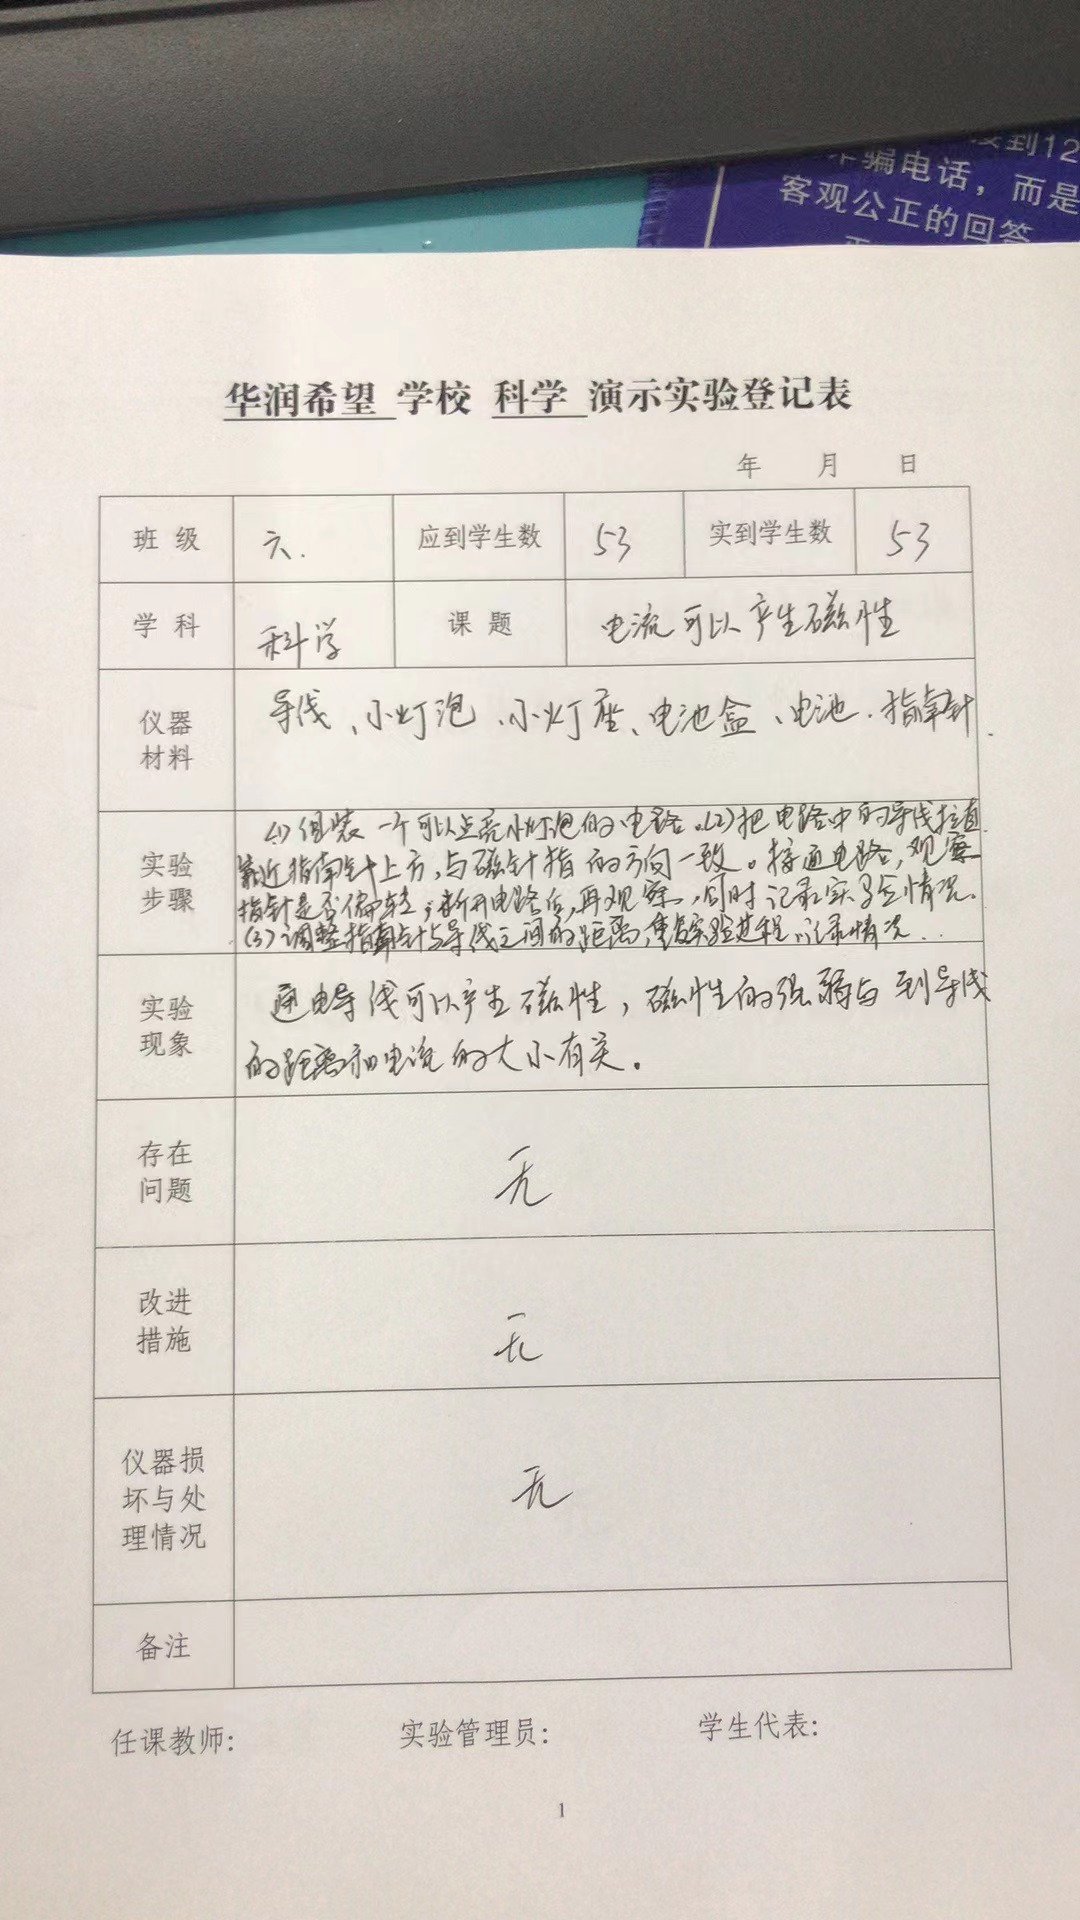 接到12
诈骗电话，而是
客观公正的回答
华润希望 学校 科学 演示实验登记表
年 月 日
班 级 六. 应到学生数 53 实到学生数 53
学 科 科学 课 题 电流可以产生磁性
仪器材料 导线、小灯泡、小灯座、电池盒、电池、指南针
实验步骤 (1)组装一个可以点亮小灯泡的电路。(2)把电路中的导线拉直
靠近指南针上方，与磁针指的方向一致。接通电路，观察
指针是否偏转；断开电路后，再观察，同时记录实验情况。
(3)调整指南针与导线之间的距离，重复实验进程，记录情况..
实验现象 通电导线可以产生磁性，磁性的强弱与到导线
的距离和电流的大小有关。
存在问题 无
改进措施 无
仪器损坏与处理情况 无
备注
任课教师: 实验管理员: 学生代表:
1